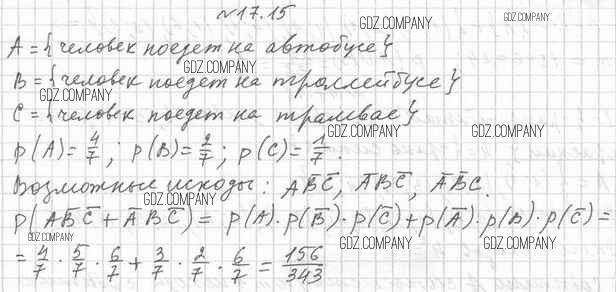 №17.15
GDZ.COMPANY
GDZ.COMPANY
A = {человек поедет на автобусе}
GDZ.COMPANY
B = {человек поедет на троллейбусе}
GDZ.COMPANY
C = {человек поедет на трамвае}
GDZ.COMPANY GDZ.COMPANY
p(A)=4/7; p(B)=2/7; p(C)=1/7.
Возможные исходы: AB̅C̅, A̅BC̅, A̅B̅C.
GDZ.COMPANY
p(AB̅C̅ + A̅BC̅) = p(A)·p(B̅)·p(C̅)+p(A̅)·p(B)·p(C̅)=
GDZ.COMPANY GDZ.COMPANY GDZ.COMPANY
= 4/7 · 5/7 · 6/7 + 3/7 · 2/7 · 6/7 = 156/343